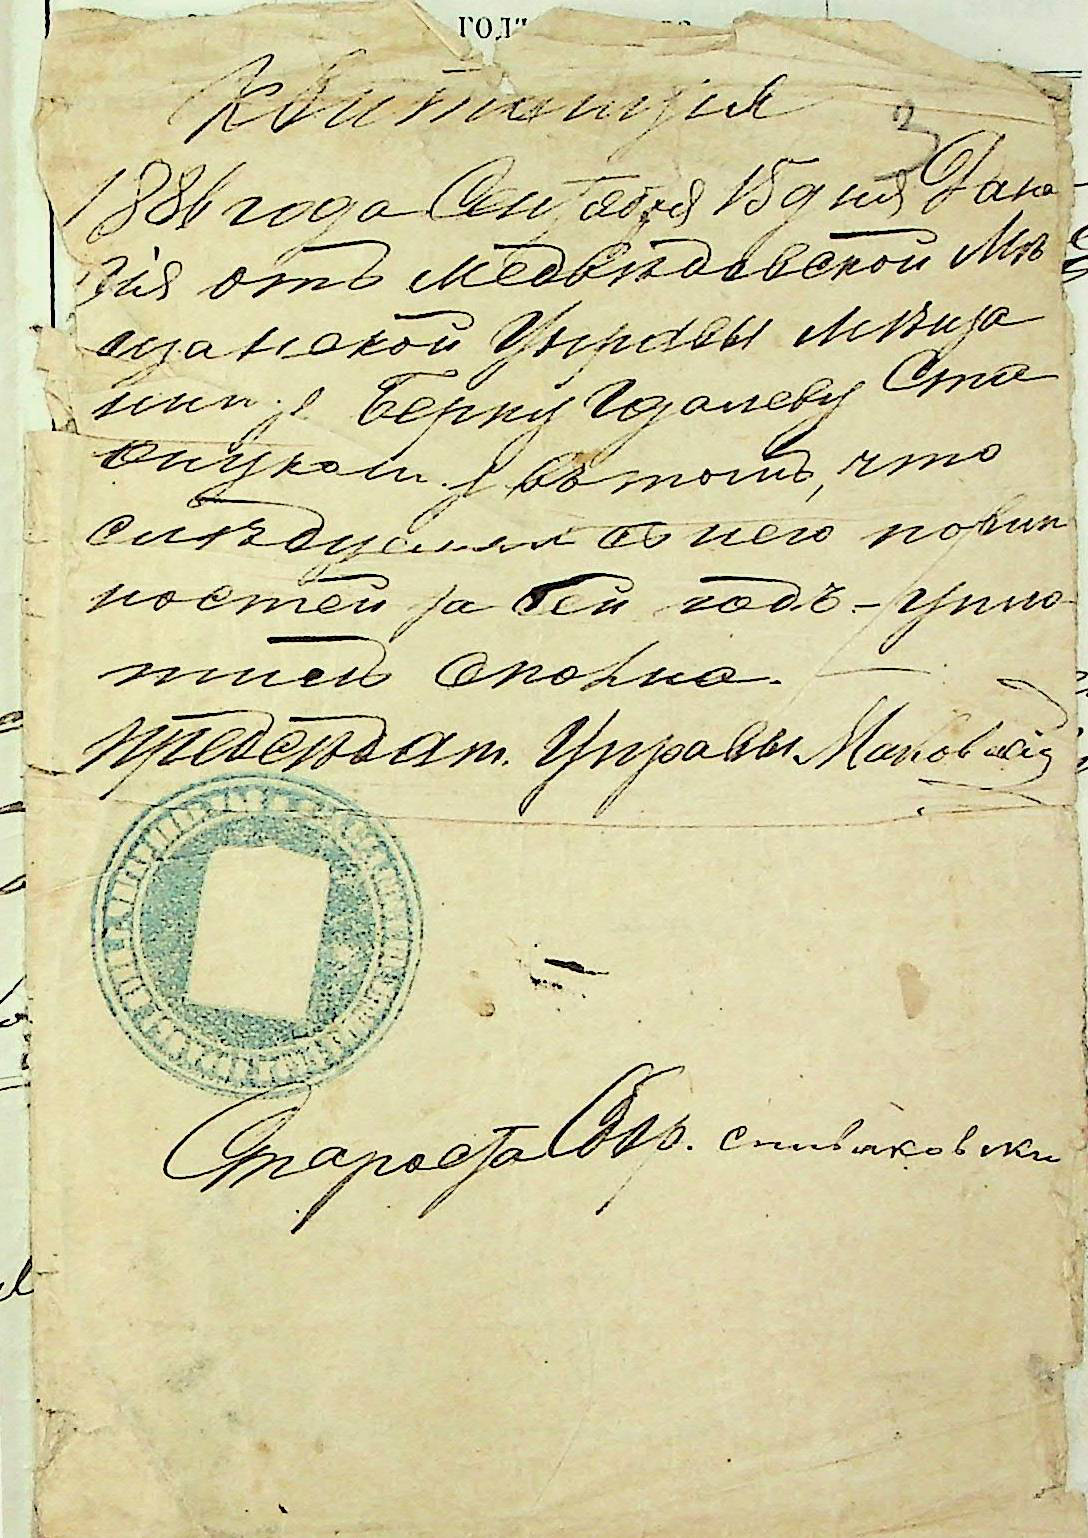 годъ
3
Квитанція
1886 года Сентября 15 дня Дана
сія отъ Медвѣдовской Мѣ
щанской Управы мѣща
нину Берку Идалеву Ста
внуком въ томъ, что
слѣдуемыя съ него повин
ностей за сей годъ – упла
тилъ сполна.
Предсѣдат. Управы Маковскій
Староста Сбор. спиваковски